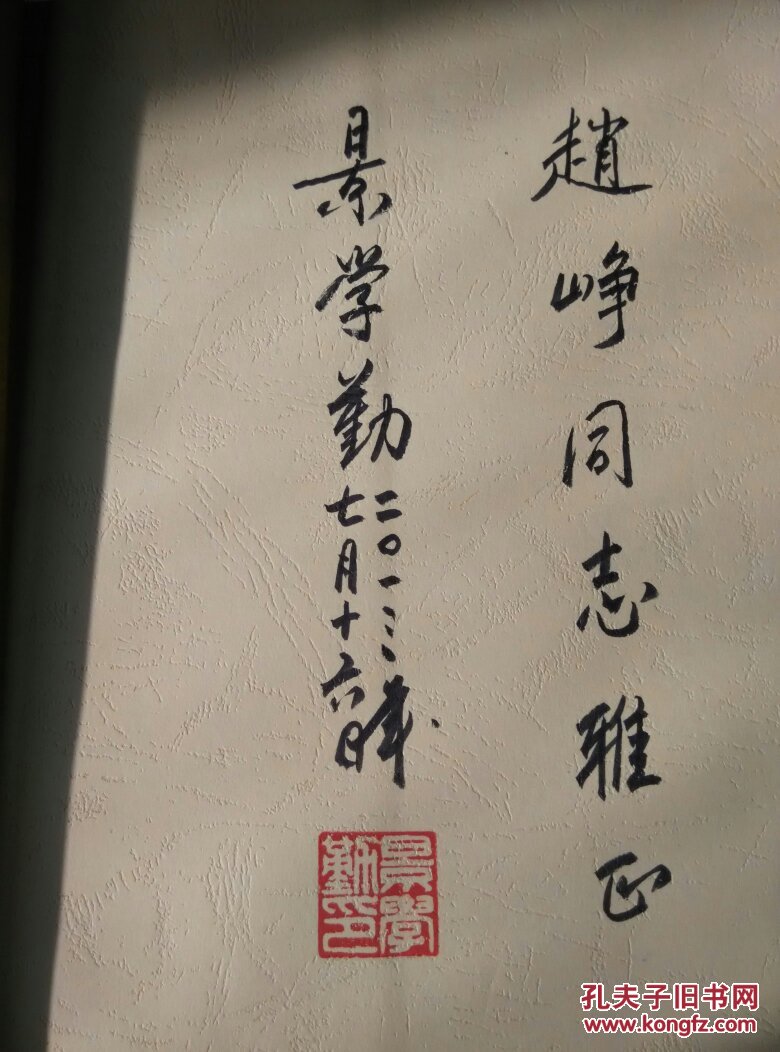 趙峥同志雅正
景学勤
二〇一三年
七月十六日
景學勤印
孔夫子旧书网
www.kongfz.com